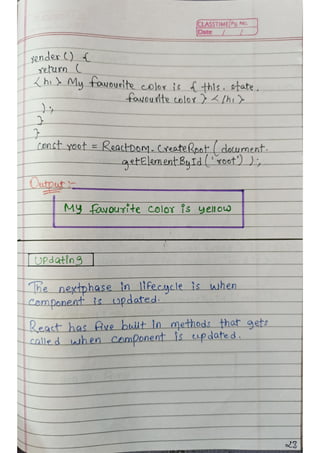 CLASSTIME Pg. No.
Date / /
render() {
return (
<h1> My favourite color is { this. state.
favourite color } </h1>
);
}
}
const root = ReactDom. CreateRoot ( document.
getElementById ('root') );
Output :-
My favourite color is yellow
Updating
The nextphase in lifecycle is when
component is updated.
React has five built in methods that gets
called when component is updated.
23